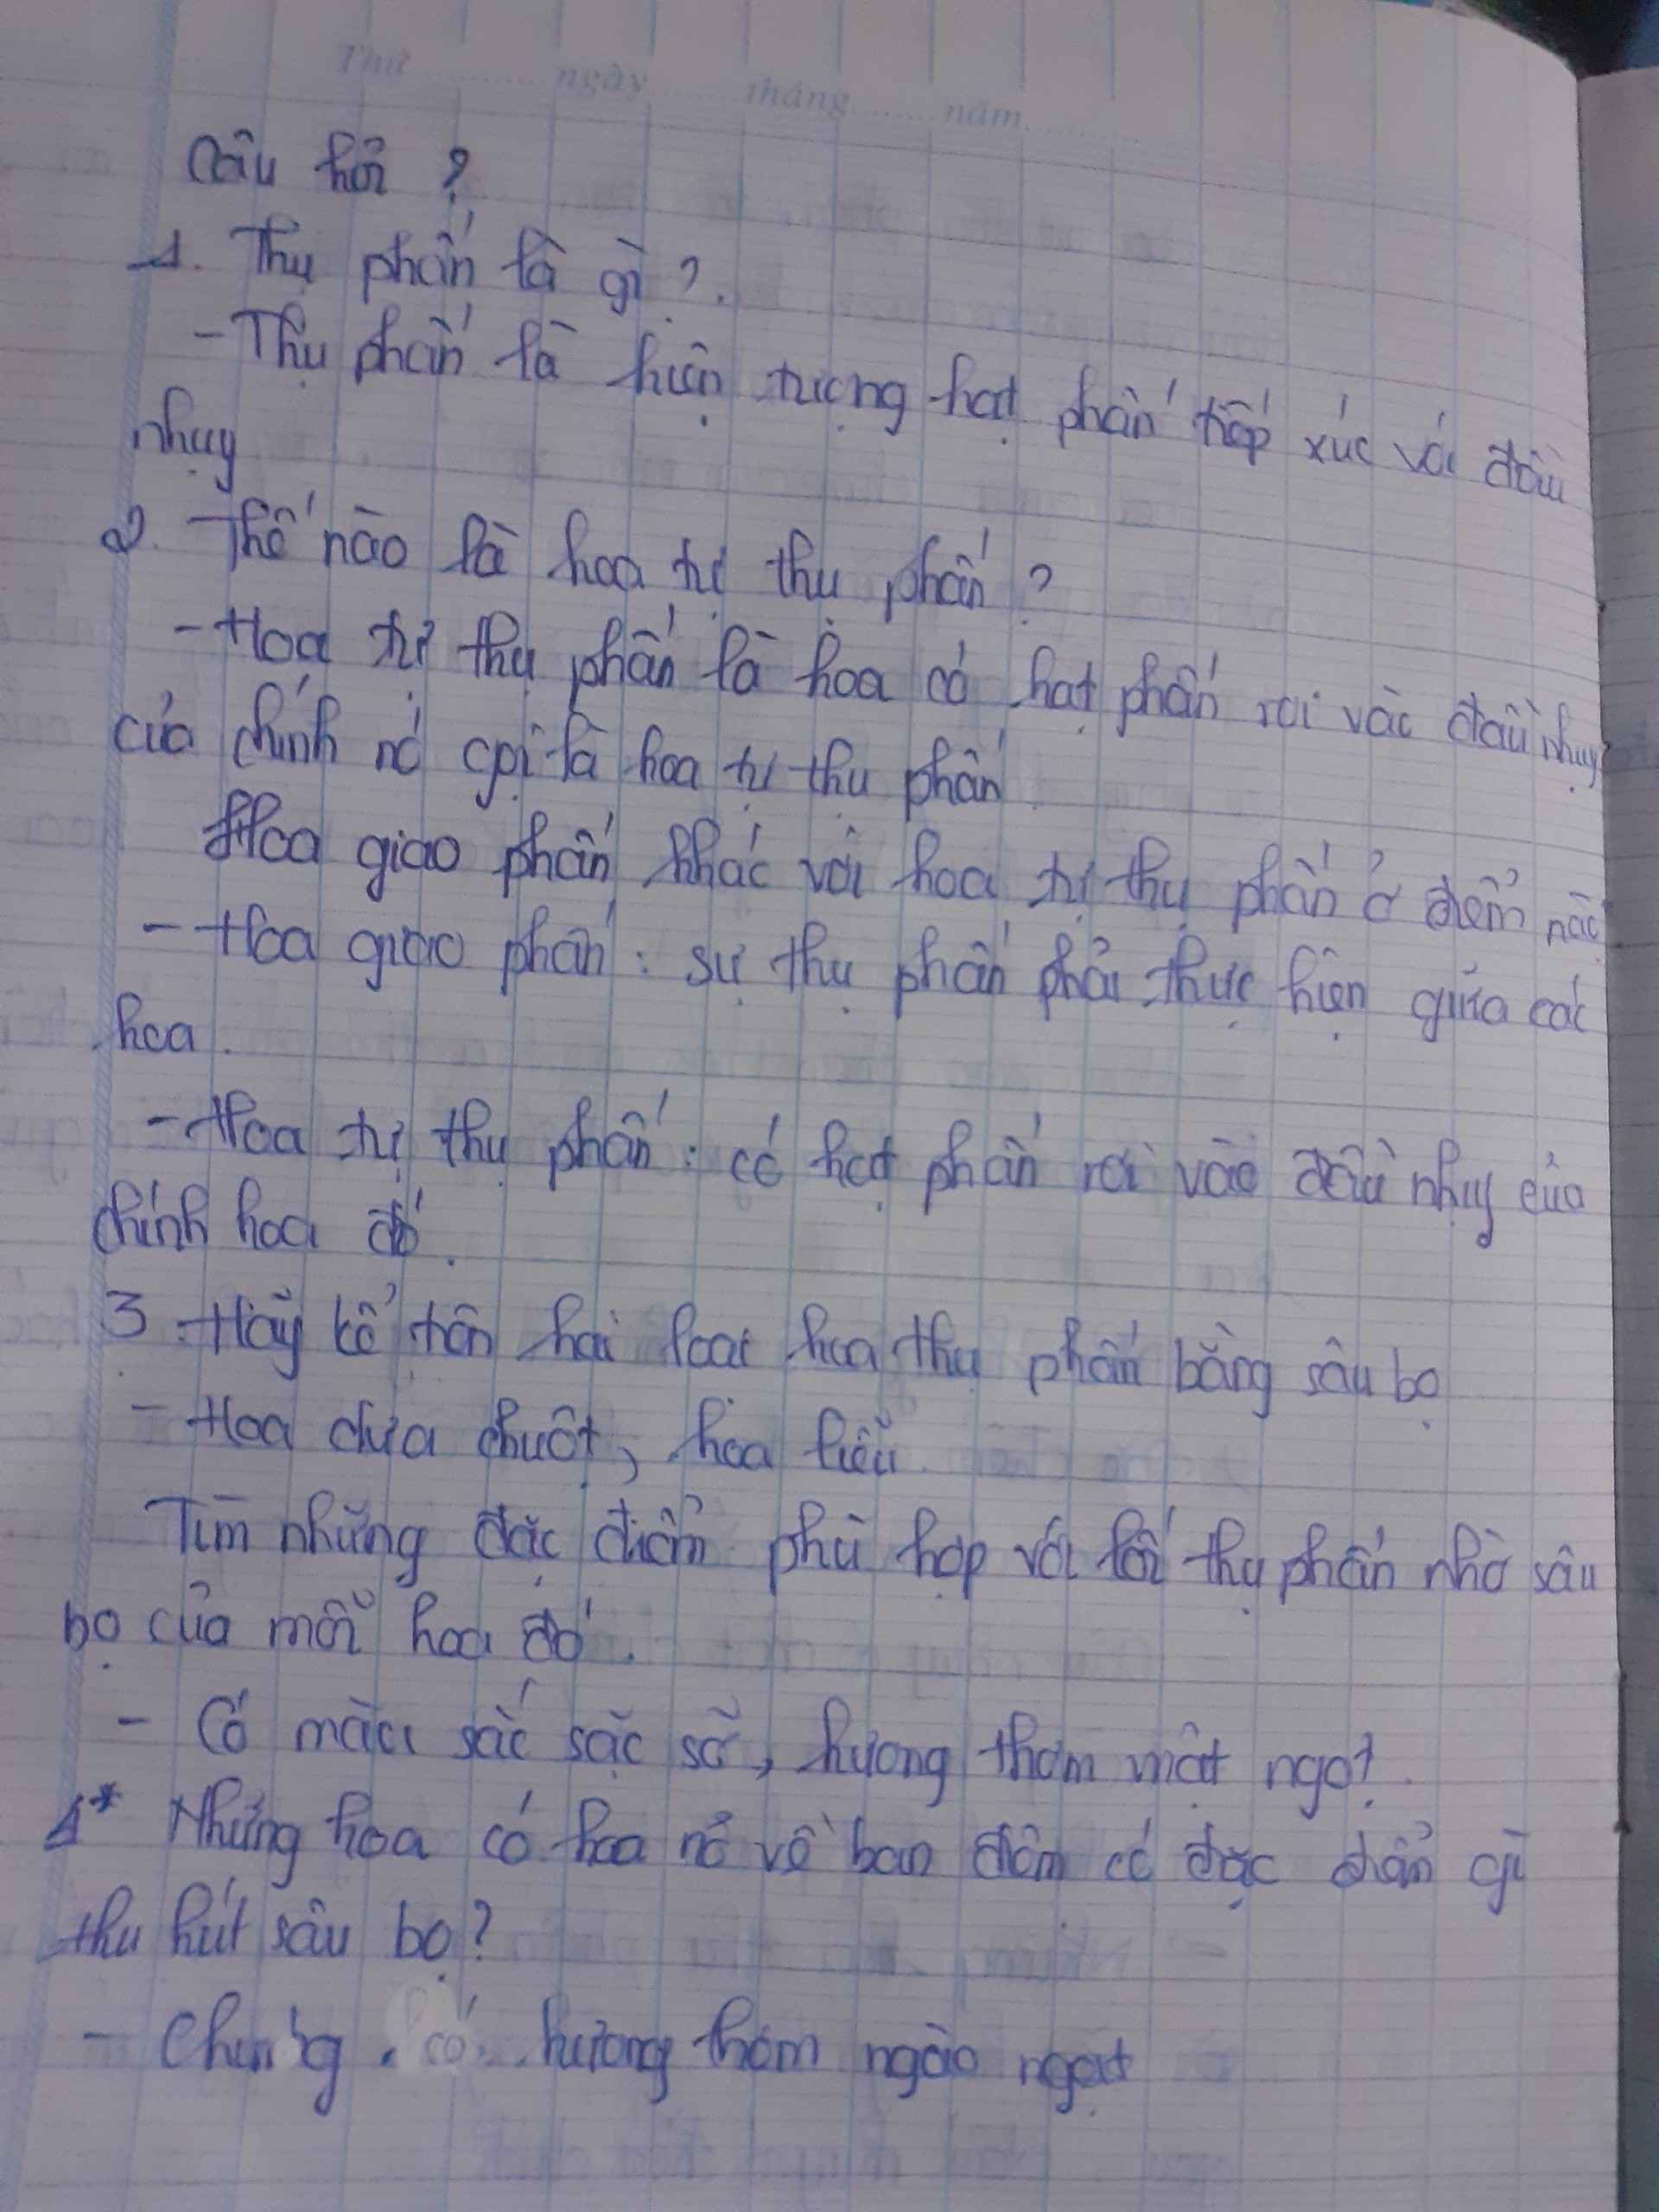 Thứ ngày tháng năm
Câu hỏi ?
1. Thụ phấn là gì ?.
- Thụ phấn là hiện tượng hạt phấn tiếp xúc với đầu
nhụy
2. Thế nào là hoa tự thụ phấn ?
- Hoa tự thụ phấn là hoa có hạt phấn rơi vào đầu nhụy
của chính nó gọi là hoa tự thụ phấn
Hoa giao phấn khác với hoa tự thụ phấn ở điểm nào
- Hoa giao phấn : sự thụ phấn phải thực hiện giữa các
hoa.
- Hoa tự thụ phấn : có hạt phấn rơi vào đầu nhụy của
chính hoa đó.
3. Hãy kể tên hai loại hoa thụ phấn bằng sâu bọ
- Hoa dưa chuột, hoa
Tìm những đặc điểm phù hợp với lối thụ phấn nhờ sâu
bọ của mỗi hoa đó.
- Có màu sắc sặc sỡ, hương thơm mật ngọt.
4* Những hoa có hoa nở về ban đêm có đặc điểm gì
thu hút sâu bọ?
- Chúng có hương thơm ngào ngạt